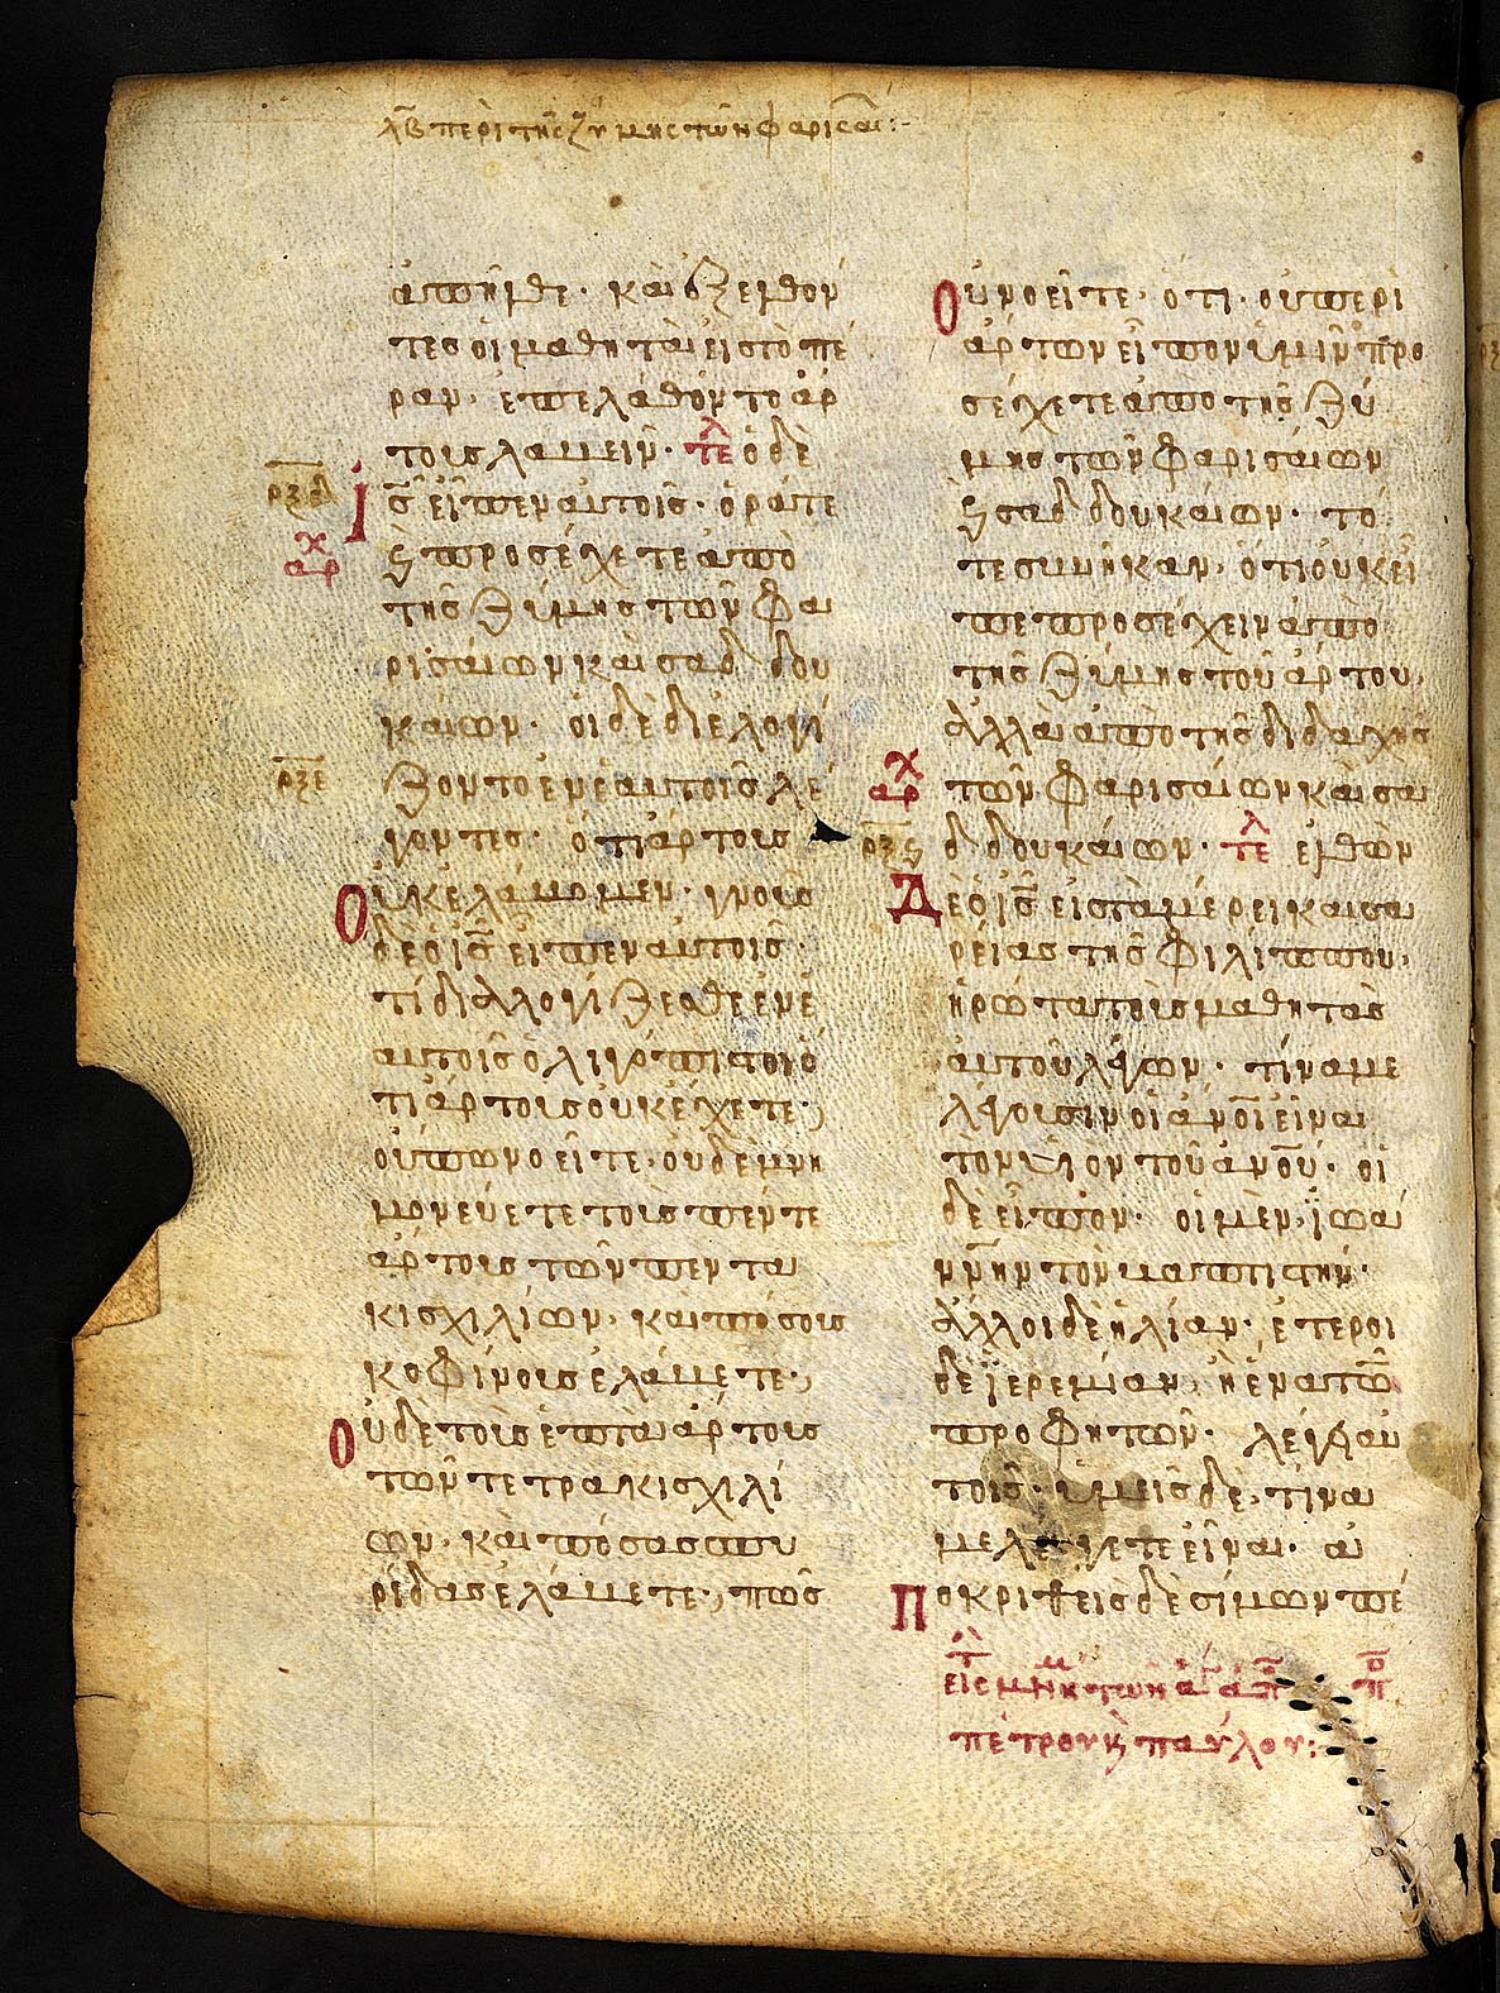 λβ περὶ τῆς ζύμης τῶν φαρισαί:-
ἀπῆλθε· καὶ ἐξελθόν
τες οἱ μαθηταὶ εἰς τὸ πέ
ραν, ἐπελάθοντο ἄρ
τους λαβεῖν· τελ ὁ δὲ
ρξδ
ις εἶπεν αὐτοῖς· ὁρᾶτε
αρχ
ϗ προσέχετε ἀπὸ
τῆς ζύμης τῶν φα
ρισαίων καὶ σαδδου
καίων· οἱ δὲ διελογί
ρξε
ζοντο ἐν ἑαυτοῖς λέ
γοντες· ὅτι ἄρτους
οὐκ ἐλάβομεν· γνοὺς
δὲ ὁ ις εἶπεν αὐτοῖς·
τί διαλλογίζεσθε ἐν ἑ
αυτοῖς ὀλιγόπιστοι ὅ
τι ἄρτους οὐκ ἔχετε·,
οὔπω νοεῖτε· οὐδὲ μνη
μονεύετε τοὺς πέντε
ἄρτους τῶν πεντα
κισχιλίων, καὶ πόσους
κοφίνους ἐλάβετε·,
Οὐδὲ τοὺς ἑπτὰ ἄρτους
τῶν τετρακισχιλί
ων· καὶ πόσας σπυ
ρίδας ἐλάβετε·, πῶς
Οὐ νοεῖτε· ὅτι· οὐ περὶ
ἄρτων εἶπον ὑμῖν προ
σέχετε ἀπὸ τῆς ζύ
μης τῶν φαρισαίων
ϗ σαδδουκαίων· τό
τε συνῆκαν, ὅτι οὐκ εἶ
πε προσέχειν ἀπὸ
τῆς ζύμης τοῦ ἄρτου,
ἀλλὰ ἀπὸ τῆς διδαχῆς
αρχ
τῶν φαρισαίων καὶ σα
ρξϛ
δδουκαίων· τελ ἐλθὼν
Δὲ ὁ ις εἰς τὰ μέρει καισα
ρείας τῆς φιλίππου,
ἠρώτα τοὺς μαθητὰς
αὐτοῦ λέγων· τίνα με
λέγουσιν οἱ ανοι εἶναι
τὸν υἱὸν τοῦ ανου· οἱ
δὲ εἶπον· οἱ μὲν, ϊωά
ννην τὸν βαπτιστήν·
ἄλλοι δὲ ἠλίαν· ἕτεροι
δὲ ϊερεμίαν, ἢ ἕνα τῶ
προφητῶν· λέγει αὐ
τοῖς· ὑμεῖς δὲ, τίνα
με λέγετε εἶναι· ἀ
Ποκριθεὶς δὲ σίμων πέ
πέτρου ϗ παύλου: